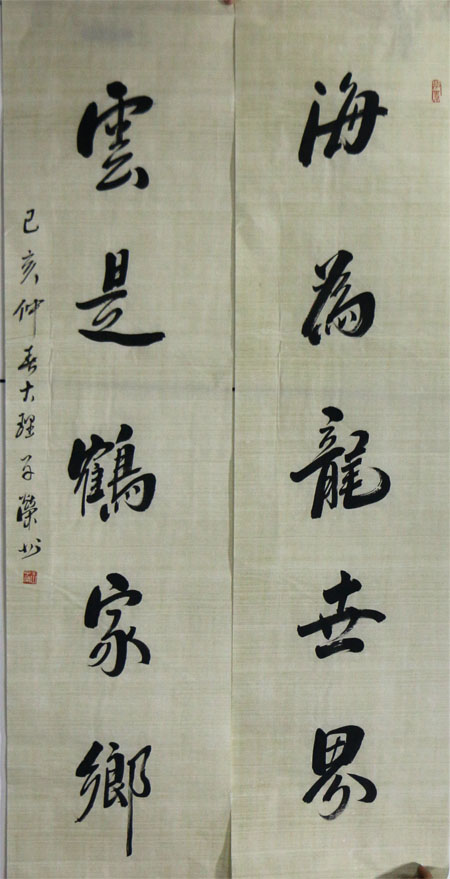 海為龍世界
雲是鶴家鄉
己亥仲春大理子榮書